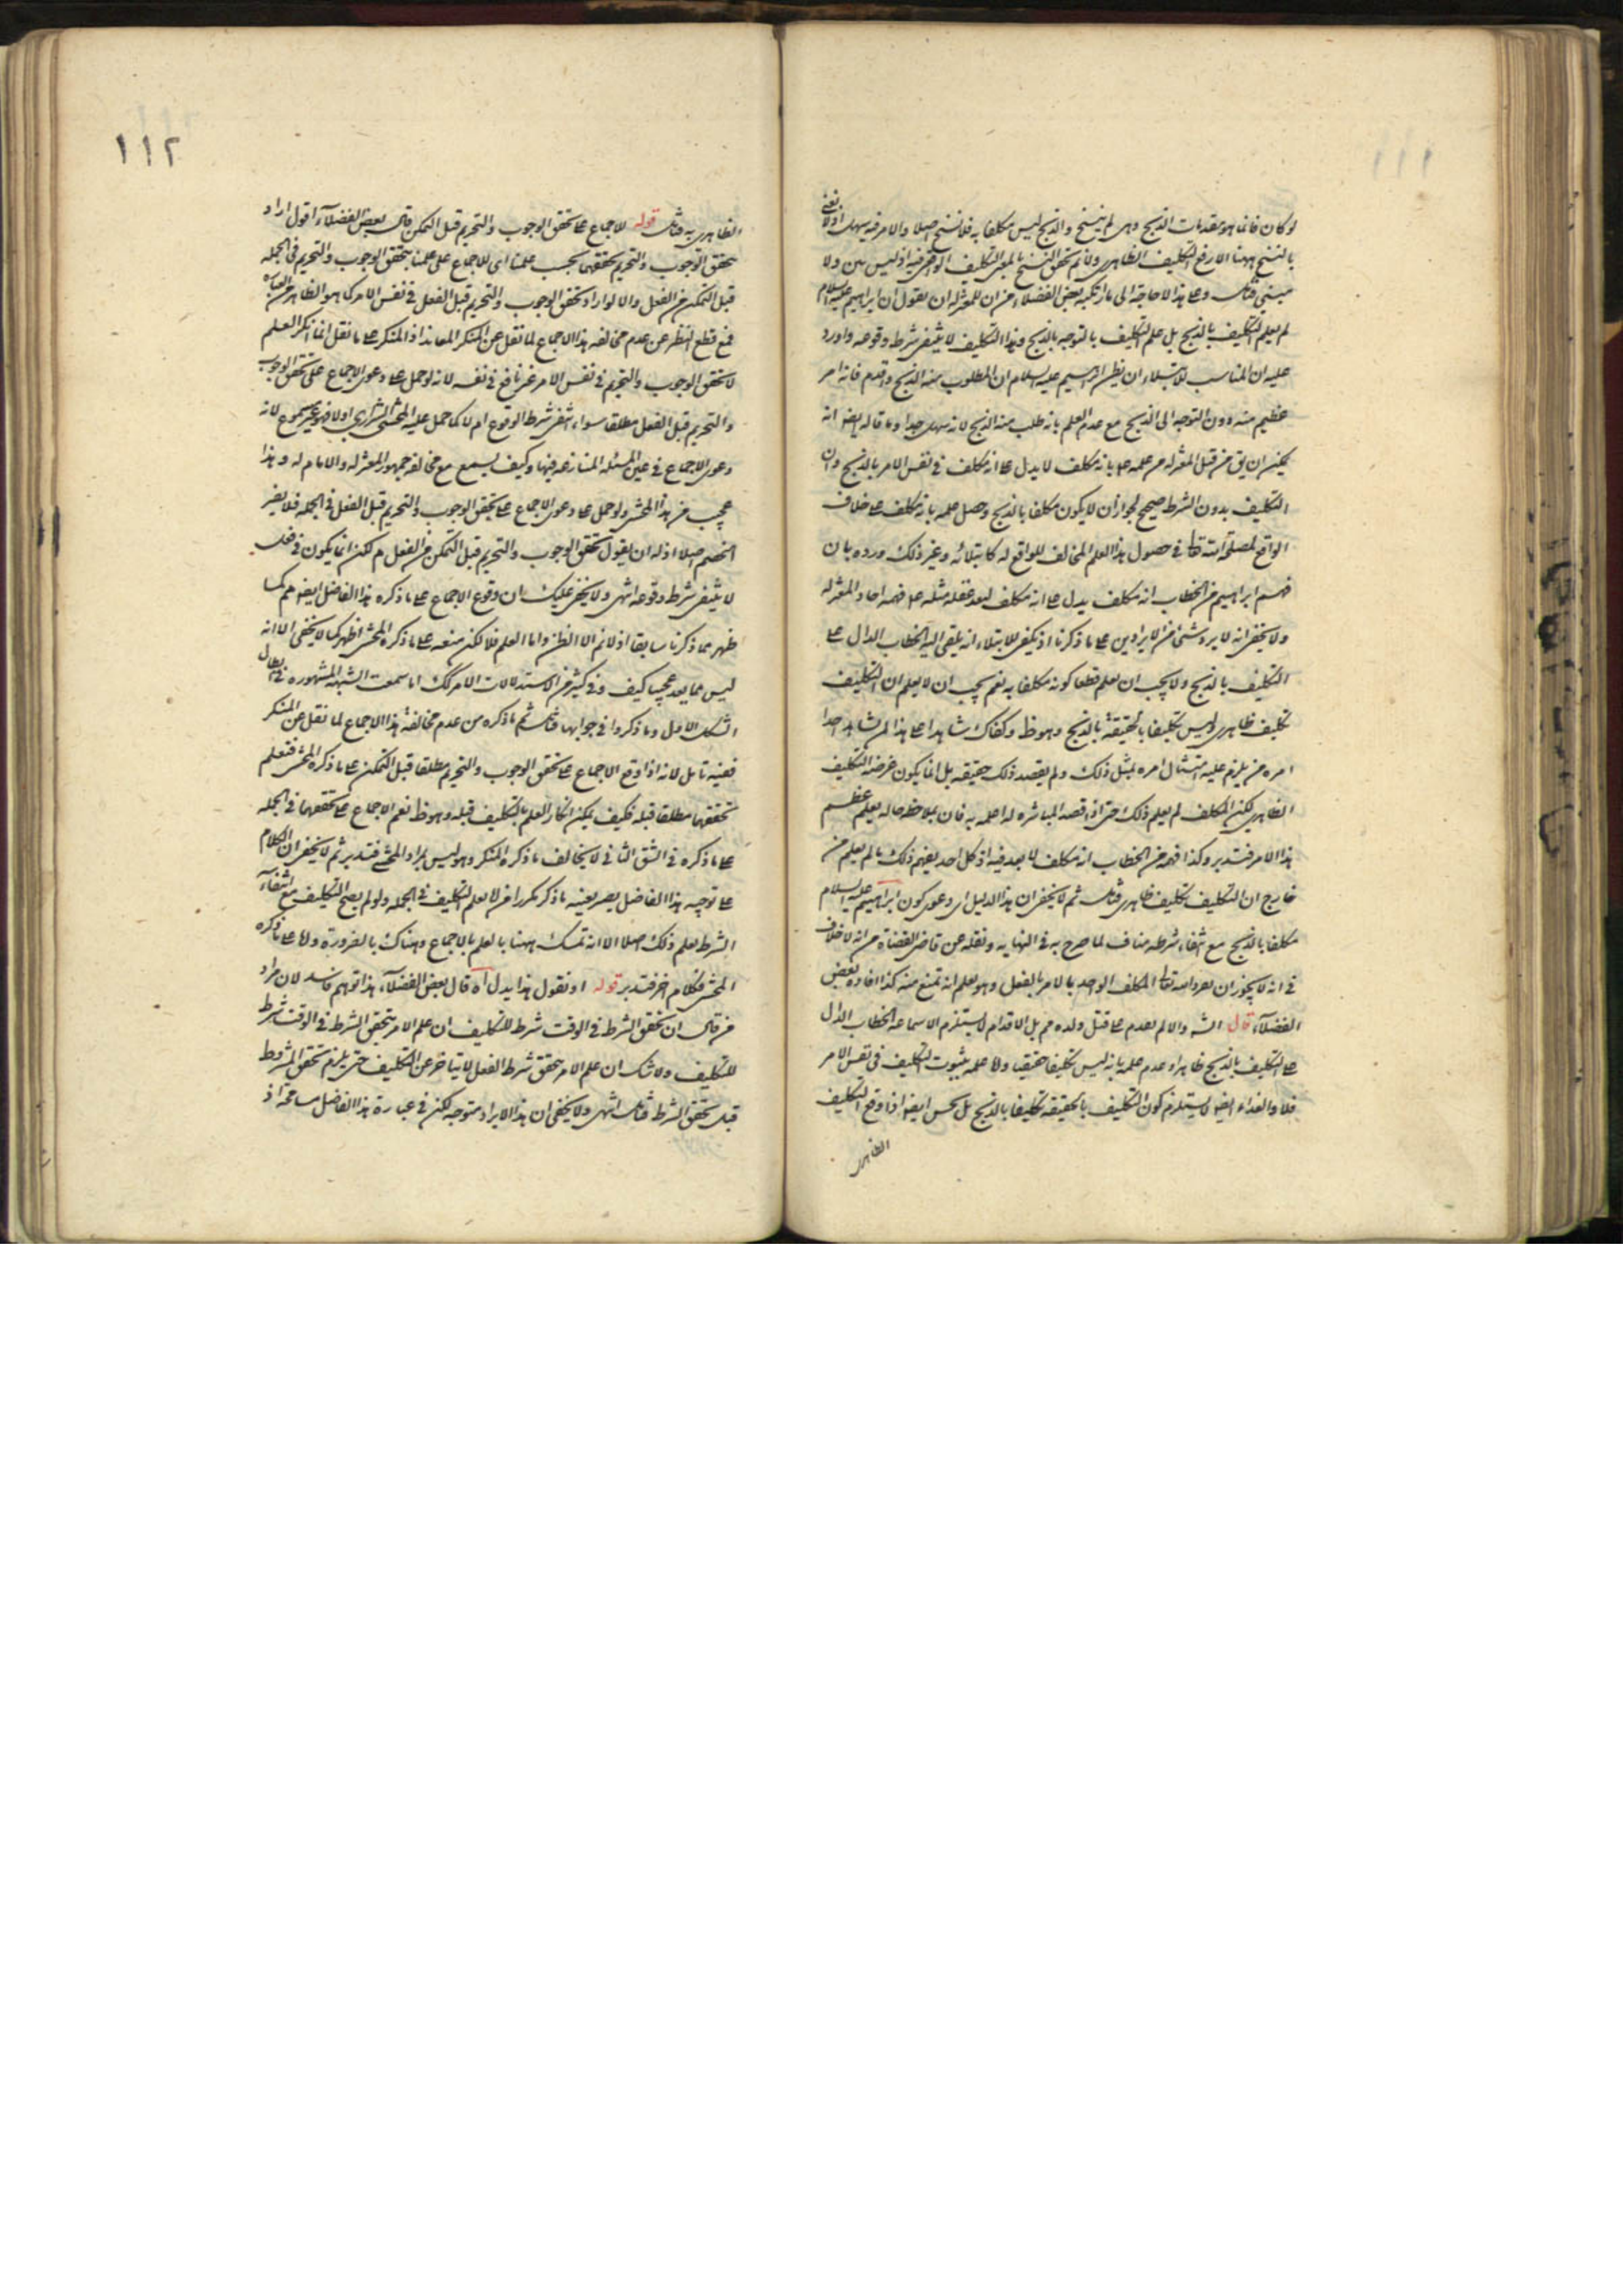 ١١١
لو كان فانما هو بمقدمات الذبح وهى لم ينسخ والذبح ليس مكلفا به فلا نسخ اصلا والامر فيه سهل اولا نعنى
بالنسخ ههنا الا رفع التكليف الظاهرى ولا نم تحقق النسخ بالمعنى التكليف الواقعى فيه اذ ليس بين ولا
مبنى فتامل وعلى هذا لا حاجة الى ما ارتكبه بعض الفضلاء من ان للمعتزلة ان يقول ان ابراهيم عليه السلام
لم يعلم التكليف بالذبح بل علم التكليف بالتوجه بالذبح وهذا التكليف لا ينتفى شرط وقوعه واورد
عليه ان المناسب للابتلاء ان يظن ابراهيم عليه السلام ان المطلوب منه الذبح واقدم فانه امر
عظيم منه دون التوجه الى الذبح مع عدم العلم بانه طلب منه الذبح لانه سهل جدا وما قاله ايضا انه
يمكن ان يق من قبل المعتزلة من علمه عا بانه مكلف لا يدل عا انه مكلف فى نفس الامر بالذبح وان
التكليف بدون الشرط صحيح لجواز ان لا يكون مكلفا بالذبح وحصل علمه بانه مكلف عا خلاف
الواقع لمصلحة الله تعا فى حصول هذا العلم المخالف للواقع له كابتلائه وغير ذلك ورده بان
فهم ابراهيم من الخطاب انه مكلف يدل عا انه مكلف لبعد غفلة مثله عا فهمه احاد المعتزلة
ولا يخفى انه لا يرد شئ من الايرادين عا ما ذكرنا اذ يكفى للابتلاء انه يلقى اليه الخطاب الدال عا
التكليف بالذبح ولا يجب ان يعلم قطعا كونه مكلفا به نعم يجب ان لا يعلم ان التكليف
تكليف ظاهرى وليس تكليفا بالحقيقة بالذبح وهو ظ وكفاك شاهدا عا هذا لمن شاهد احدا
امره من يلزم عليه امتثال امره بمثل ذلك ولم يقصد ذلك حقيقة بل انما يكون غرضه التكليف
الظاهرى لكن المكلف لم يعلم ذلك حتى اذا قصد المباشرة له اعلمه به فان بملاحظة حاله يعلم عظم
هذا الامر فتدبر وكذا فهم من الخطاب انه مكلف لا بعد فيه اذ كل احد يفهم ذلك ما لم يعلم من
خارج ان التكليف تكليف ظاهرى فتامل ثم لا يخفى ان هذا الدليل اى دعوى كون ابراهيم عليه السلام
مكلفا بالذبح مع انتفاء شرطه مناف لما صرح به فى النهاية ونقله عن قاضى القضاة من انه لا خلاف
فى انه لا يجوز ان يفرد الله تعا المكلف الواحد بالامر بالفعل وهو يعلم انه تمنع منه كذا افاده بعض
الفضلاء قال الشه والا لم يقدم عا قتل ولده مم بل الاقدام لا يستلزم الا سماعه الخطاب الدال
عا التكليف بالذبح ظاهرا وعدم علمه بانه ليس تكليفا حقيقيا واما علمه بثبوت التكليف فى نفس الامر
فلا والفداء ايضا لا يستلزم كون التكليف بالحقيقة تكليفا بالذبح بل يحسن ايضا اذا وقع التكليف
الظاهرى
١١٢
الظاهرى به فتامل قوله للاجماع عا تحقق الوجوب والتحريم قبل التمكن قال بعض الفضلاء اقول اراد
بتحقق الوجوب والتحريم تحققهما بحسب علمنا اى للاجماع على علمنا بتحقق الوجوب والتحريم فى الجملة
قبل التمكن من الفعل والا لو اراد تحقق الوجوب والتحريم قبل الفعل فى نفس الامر كما هو الظاهر من العبارة
فمع قطع النظر عن عدم مخالفة هذا الاجماع لما نقل عن المنكر المعاند اذ المنكر عا ما نقل انما انكر العلم
لا تحقق الوجوب والتحريم فى نفس الامر غير نافع فى نفسه لانه لو حمل عا دعوى الاجماع على تحقق الوجوب
والتحريم قبل الفعل مطلقا سواء انتفى شرط الوقوع ام لا كما حمل عليه المحشى الشيرازى اولا فهو غير مسموع لانه
دعوى الاجماع فى عين المسئلة المتنازعه فيها وكيف يسمع مع مخالفة جمهور المعتزلة والامام له وهذا
عجيب من هذا المحشى ولو حمل عا دعوى الاجماع عا تحقق الوجوب والتحريم قبل الفعل فى الجملة فلا يضر
الخصم اصلا اذ له ان يقول تحقق الوجوب والتحريم قبل التمكن من الفعل م لكن انما يكون فى فعل
لا ينتفى شرط وقوعه انتهى ولا يخفى عليك ان وقوع الاجماع عا ما ذكره هذا الفاضل ايضا مم كما
ظهر مما ذكرنا سابقا اذ لا نم الا الظن واما العلم فلا لكن منعه عا ما ذكره المحشى اظهر كما لا يخفى الا انه
ليس مما يعد عجيبا كيف وفى كثير من الاستدلالات الامر كك اما سمعت الشبهة المشهورة فى ابطال
الشكل الاول وما ذكروا فى جوابها فتامل ثم ما ذكره من عدم مخالفة هذا الاجماع لما نقل عن المنكر
ففيه تامل لانه اذا وقع الاجماع عا تحقق الوجوب والتحريم مطلقا قبل التمكن عا ما ذكره المحشى فنعلم
تحققهما مطلقا قبله فكيف يمكن انكار العلم بالتكليف قبله وهو ظ نعم الاجماع عا تحققهما فى الجملة
عا ما ذكره فى الشق الثانى لا يخالف ما ذكره المنكر وهو ليس بمراد المحشى فتدبر ثم لا يخفى ان الكلام
عا توجيه هذا الفاضل يصير بعينه ما ذكر مكررا من لا يعلم التكليف فى الجملة ولو لم يصح التكليف مع انتفاء
الشرط لم يعلم ذلك اصلا الا انه تمسك ههنا بالعلم بالاجماع وهناك بالضرورة واما عا ما ذكره
المحشى فكلام اخر فتدبر قوله او نقول هذا يدل اه قال بعض الفضلاء هذا توهم فاسد لان مراد
من قال ان تحقق الشرط فى الوقت شرط للتكليف ان علم الامر بتحقق الشرط فى الوقت شرط
للتكليف ولا شك ان علم الامر بتحقق شرط الفعل لا يتاخر عن التكليف حتى يلزم تحقق المشروط
قبل تحقق الشرط فتامل انتهى ولا يخفى ان هذا الايراد متوجه لكن فى عبارة هذا الفاضل مسامحة اذ